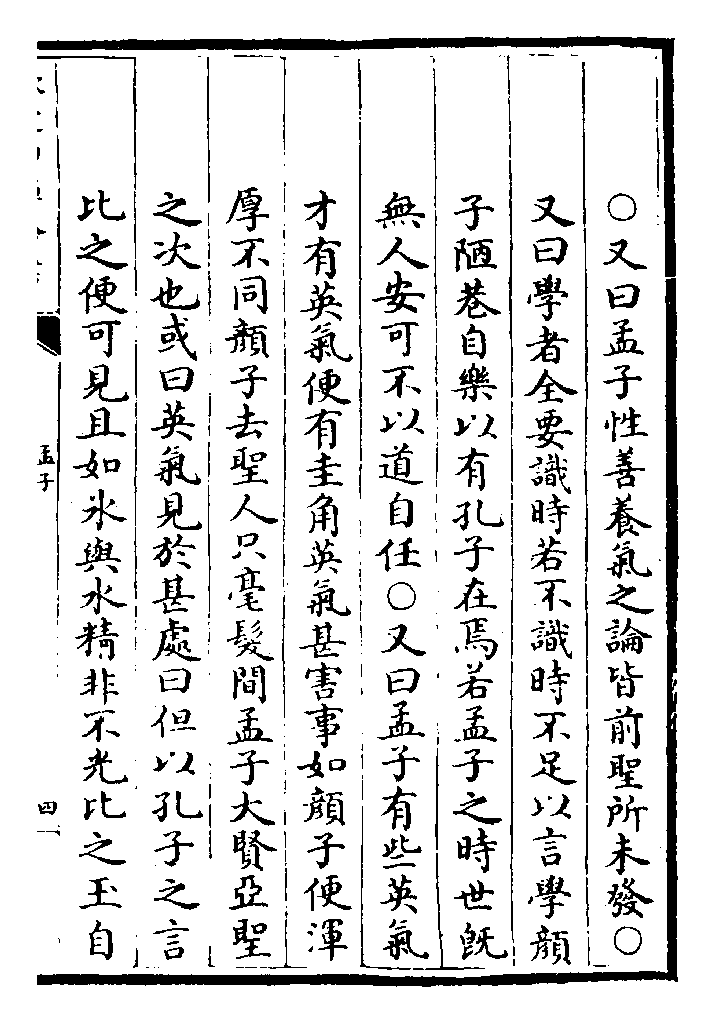 ○又曰孟子性善養氣之論皆前聖所未發○
又曰學者全要識時若不識時不足以言學顔
子陋巷自樂以有孔子在焉若孟子之時世既
無人安可不以道自任○又曰孟子有些英氣
才有英氣便有圭角英氣甚害事如顔子便渾
厚不同顔子去聖人只毫髮間孟子大賢亞聖
之次也或曰英氣見於甚處曰但以孔子之言
比之便可見且如氷與水精非不光比之玉自
孟子
四